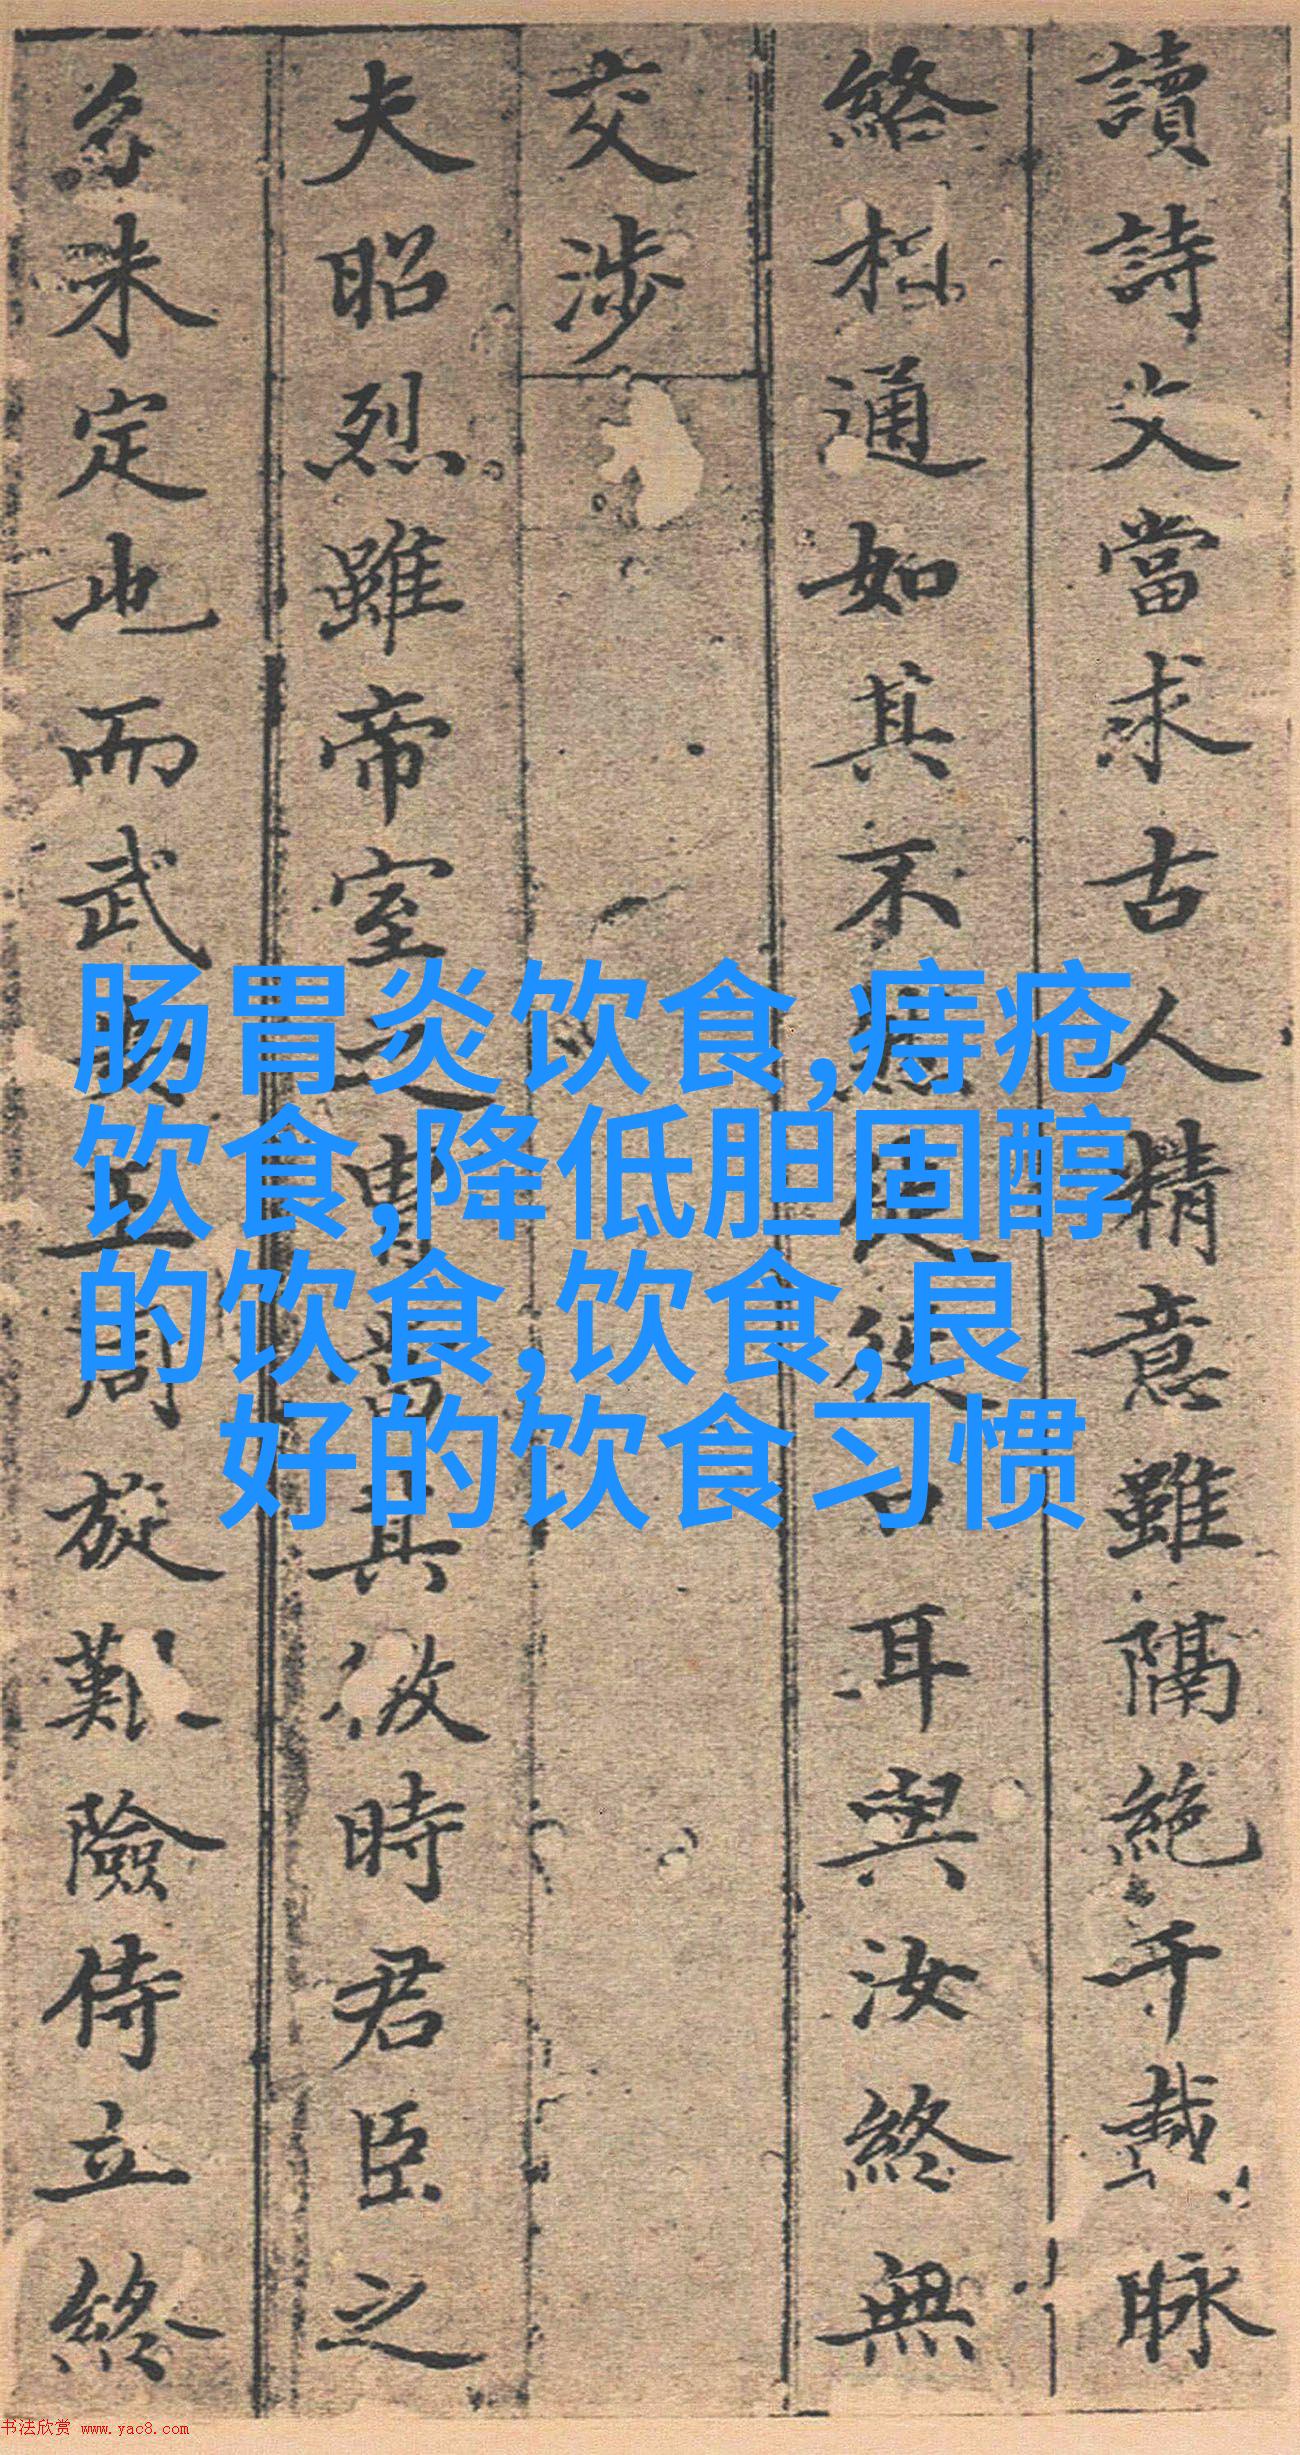 讀詩文當求古人精意雖隔絶千載脉
絡相通如其不 耳與汝終無
交涉
夫昭烈雖帝室之胄當其微時君臣之
名未定也而武 王周旋艱險侍立終
肠胃炎饮食,痔疮
饮食,降低胆固醇
的饮食,饮食,良
好的饮食习惯
书法欣赏 www.yac8.com